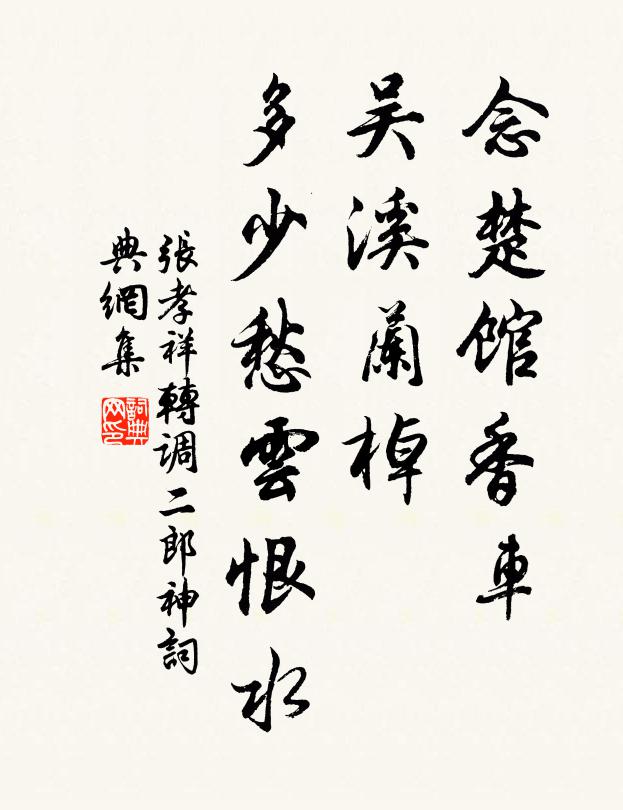 念楚館香車
吴溪蘭棹
多少愁雲恨水
張孝祥轉調二郎神詞
典網集
詞典网印